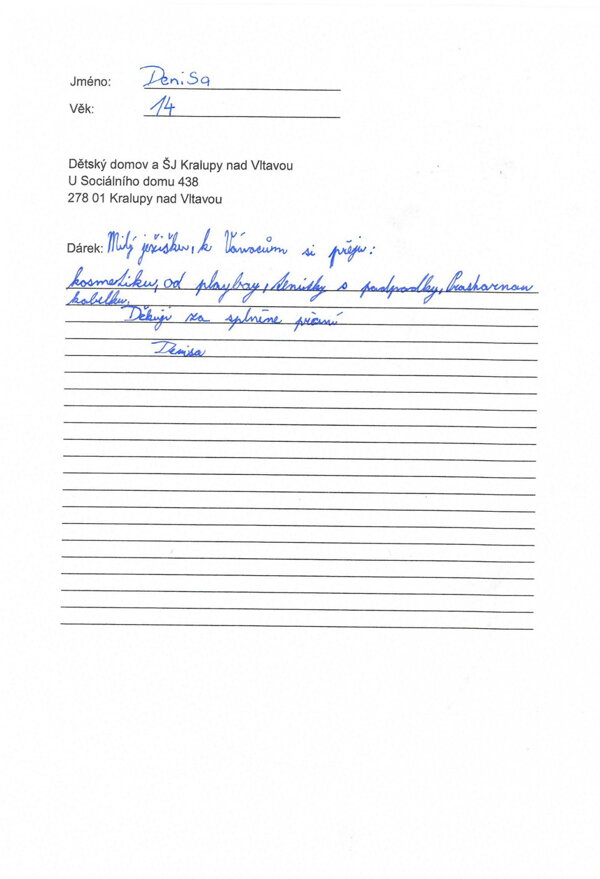 Jméno: Denisa
Věk: 14
Dětský domov a ŠJ Kralupy nad Vltavou
U Sociálního domu 438
278 01 Kralupy nad Vltavou
Dárek: Milý ježíšku, k Vánocům si přeju:
kosmetiku, od playbay, tenisky s podpadky,
kabelku.
Děkuji za splněne přání
Denisa